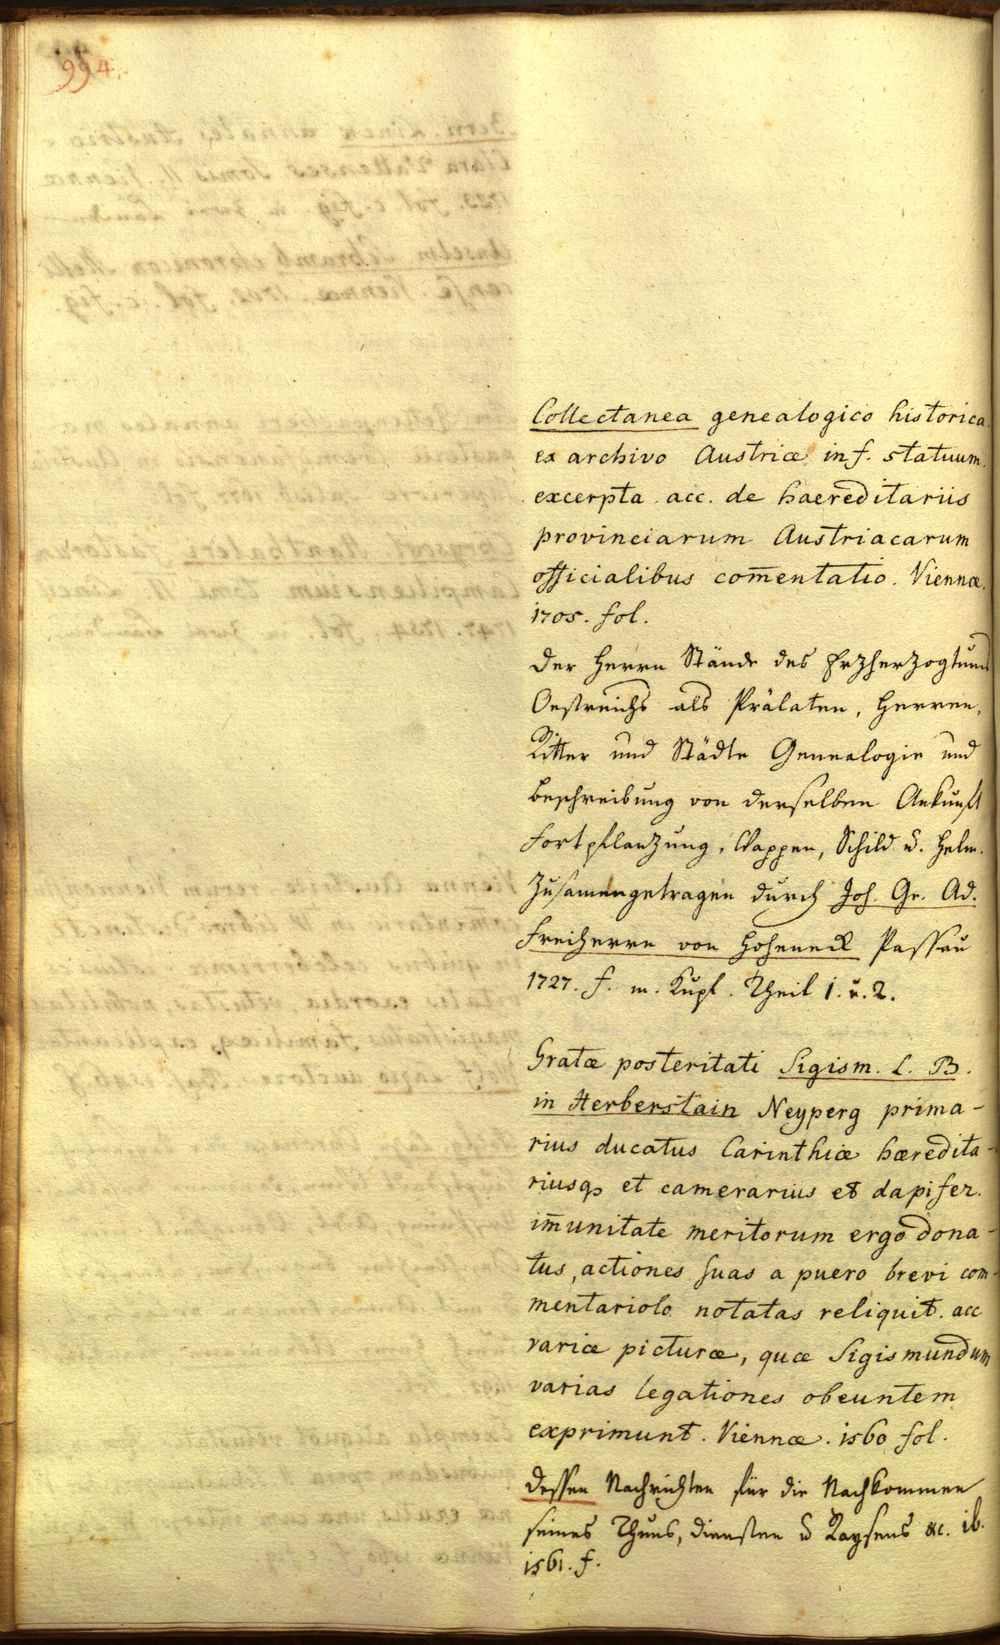 994.
Collectanea genealogico historica
ex archivo Austriæ inf. statuum.
excerpta acc. de haereditariis
provinciarum Austriacarum
officialibus com̄entatio. Viennæ.
1705. fol.
Der Herrn Stände des Erzherzogtums
Oestreichs als Prälaten, Herren,
Ritter und Städte Genealogie und
Beschreibung von derselben Ankunft
Fortpflanzung, Wappen, Schild u. Helm.
Zusamengetragen durch Joh. Gr. Ad.
Freiherrn von Hoheneck Passau
1727. f. m. Kupf. Theil 1. u. 2.
Gratæ posteritati Sigism. L. B.
in Herberstain Neyperg prima-
rius ducatus Carinthiæ hæredita-
riusq et camerarius et dapifer.
im̄unitate meritorum ergo dona-
tus, actiones suas a puero brevi com-
mentariolo notatas reliquit. acc
variæ picturæ, quæ Sigismundum
varias legationes obeuntem
exprimunt. Viennæ. 1560 fol.
Dessen Nachrichten für die Nachkommen
seines Thuns, Diensten u Raysens &c. ib.
1561. f.